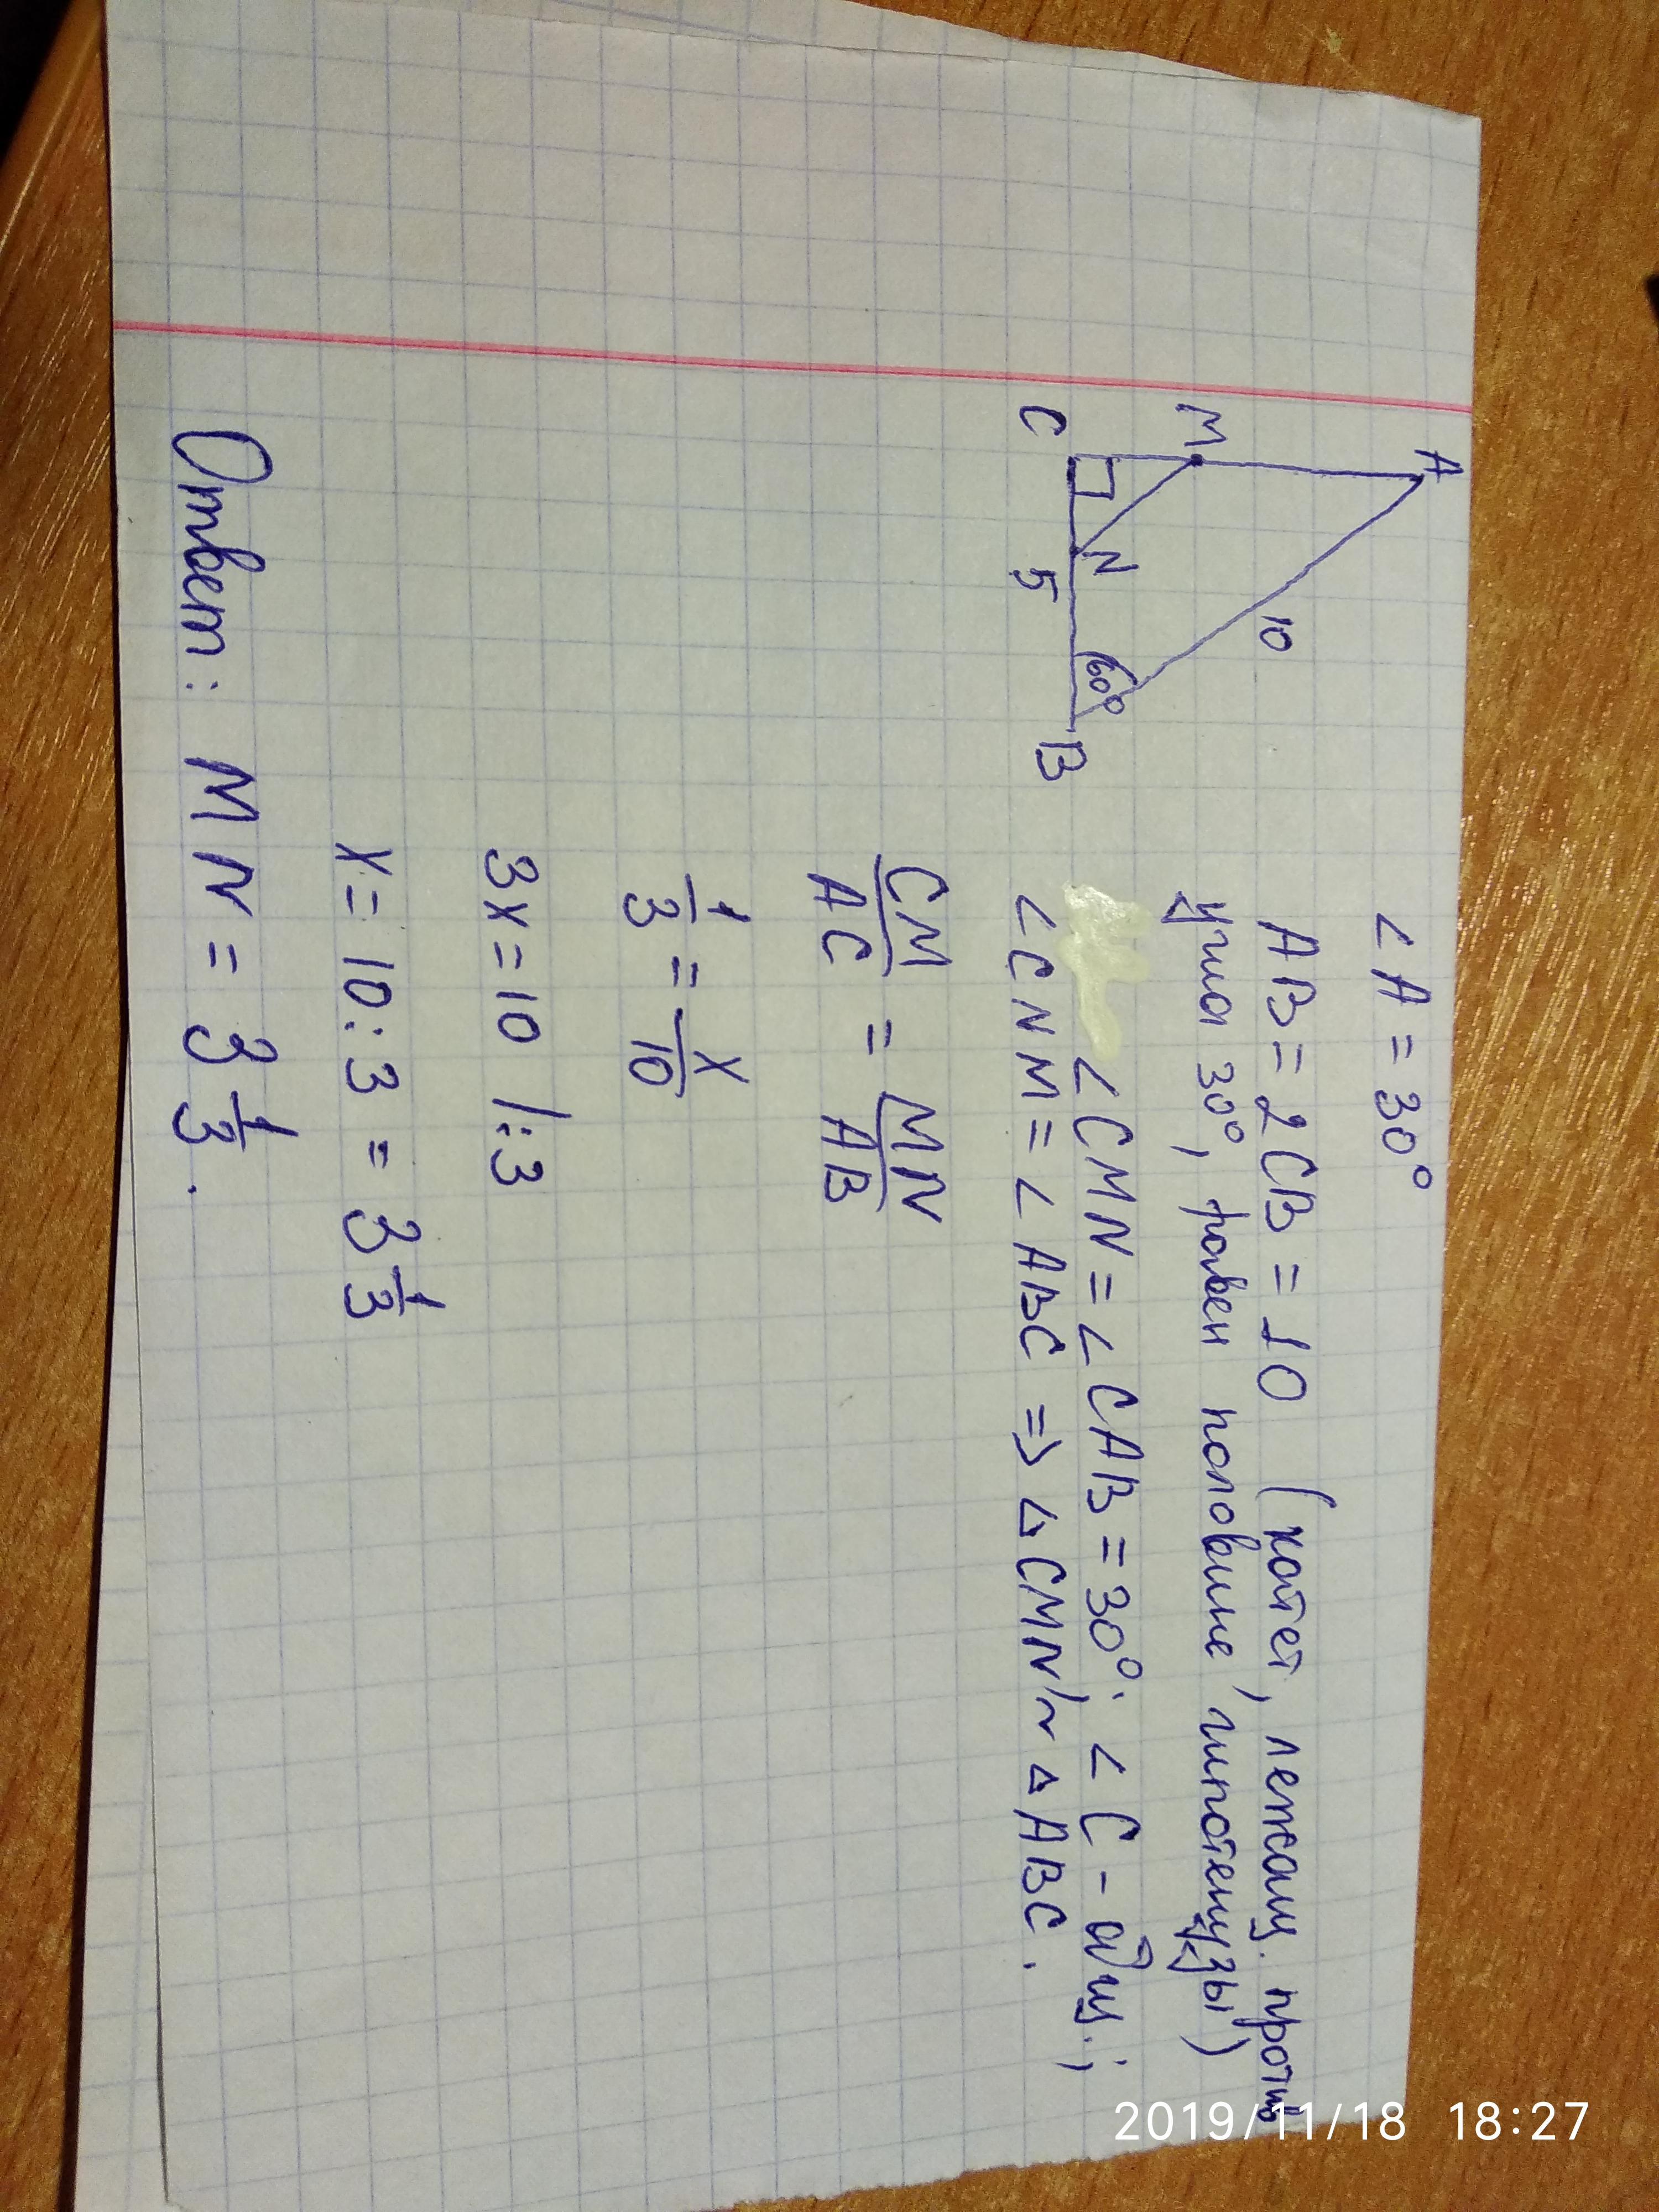 A
M
C
N
B
10
5
60°
< A = 30°
AB = 2CB = 10 (катет, лежащ. против
угла 30°, равен половине гипотенузы)
< CMN = < CAB = 30°. < C - общ.;
< CNM = < ABC => △ CMN ~ △ ABC.
CM/AC = MN/AB
1/3 = x/10
3x = 10 |:3
x = 10:3 = 3 1/3
Ответ: MN = 3 1/3.
2019/11/18 18:27